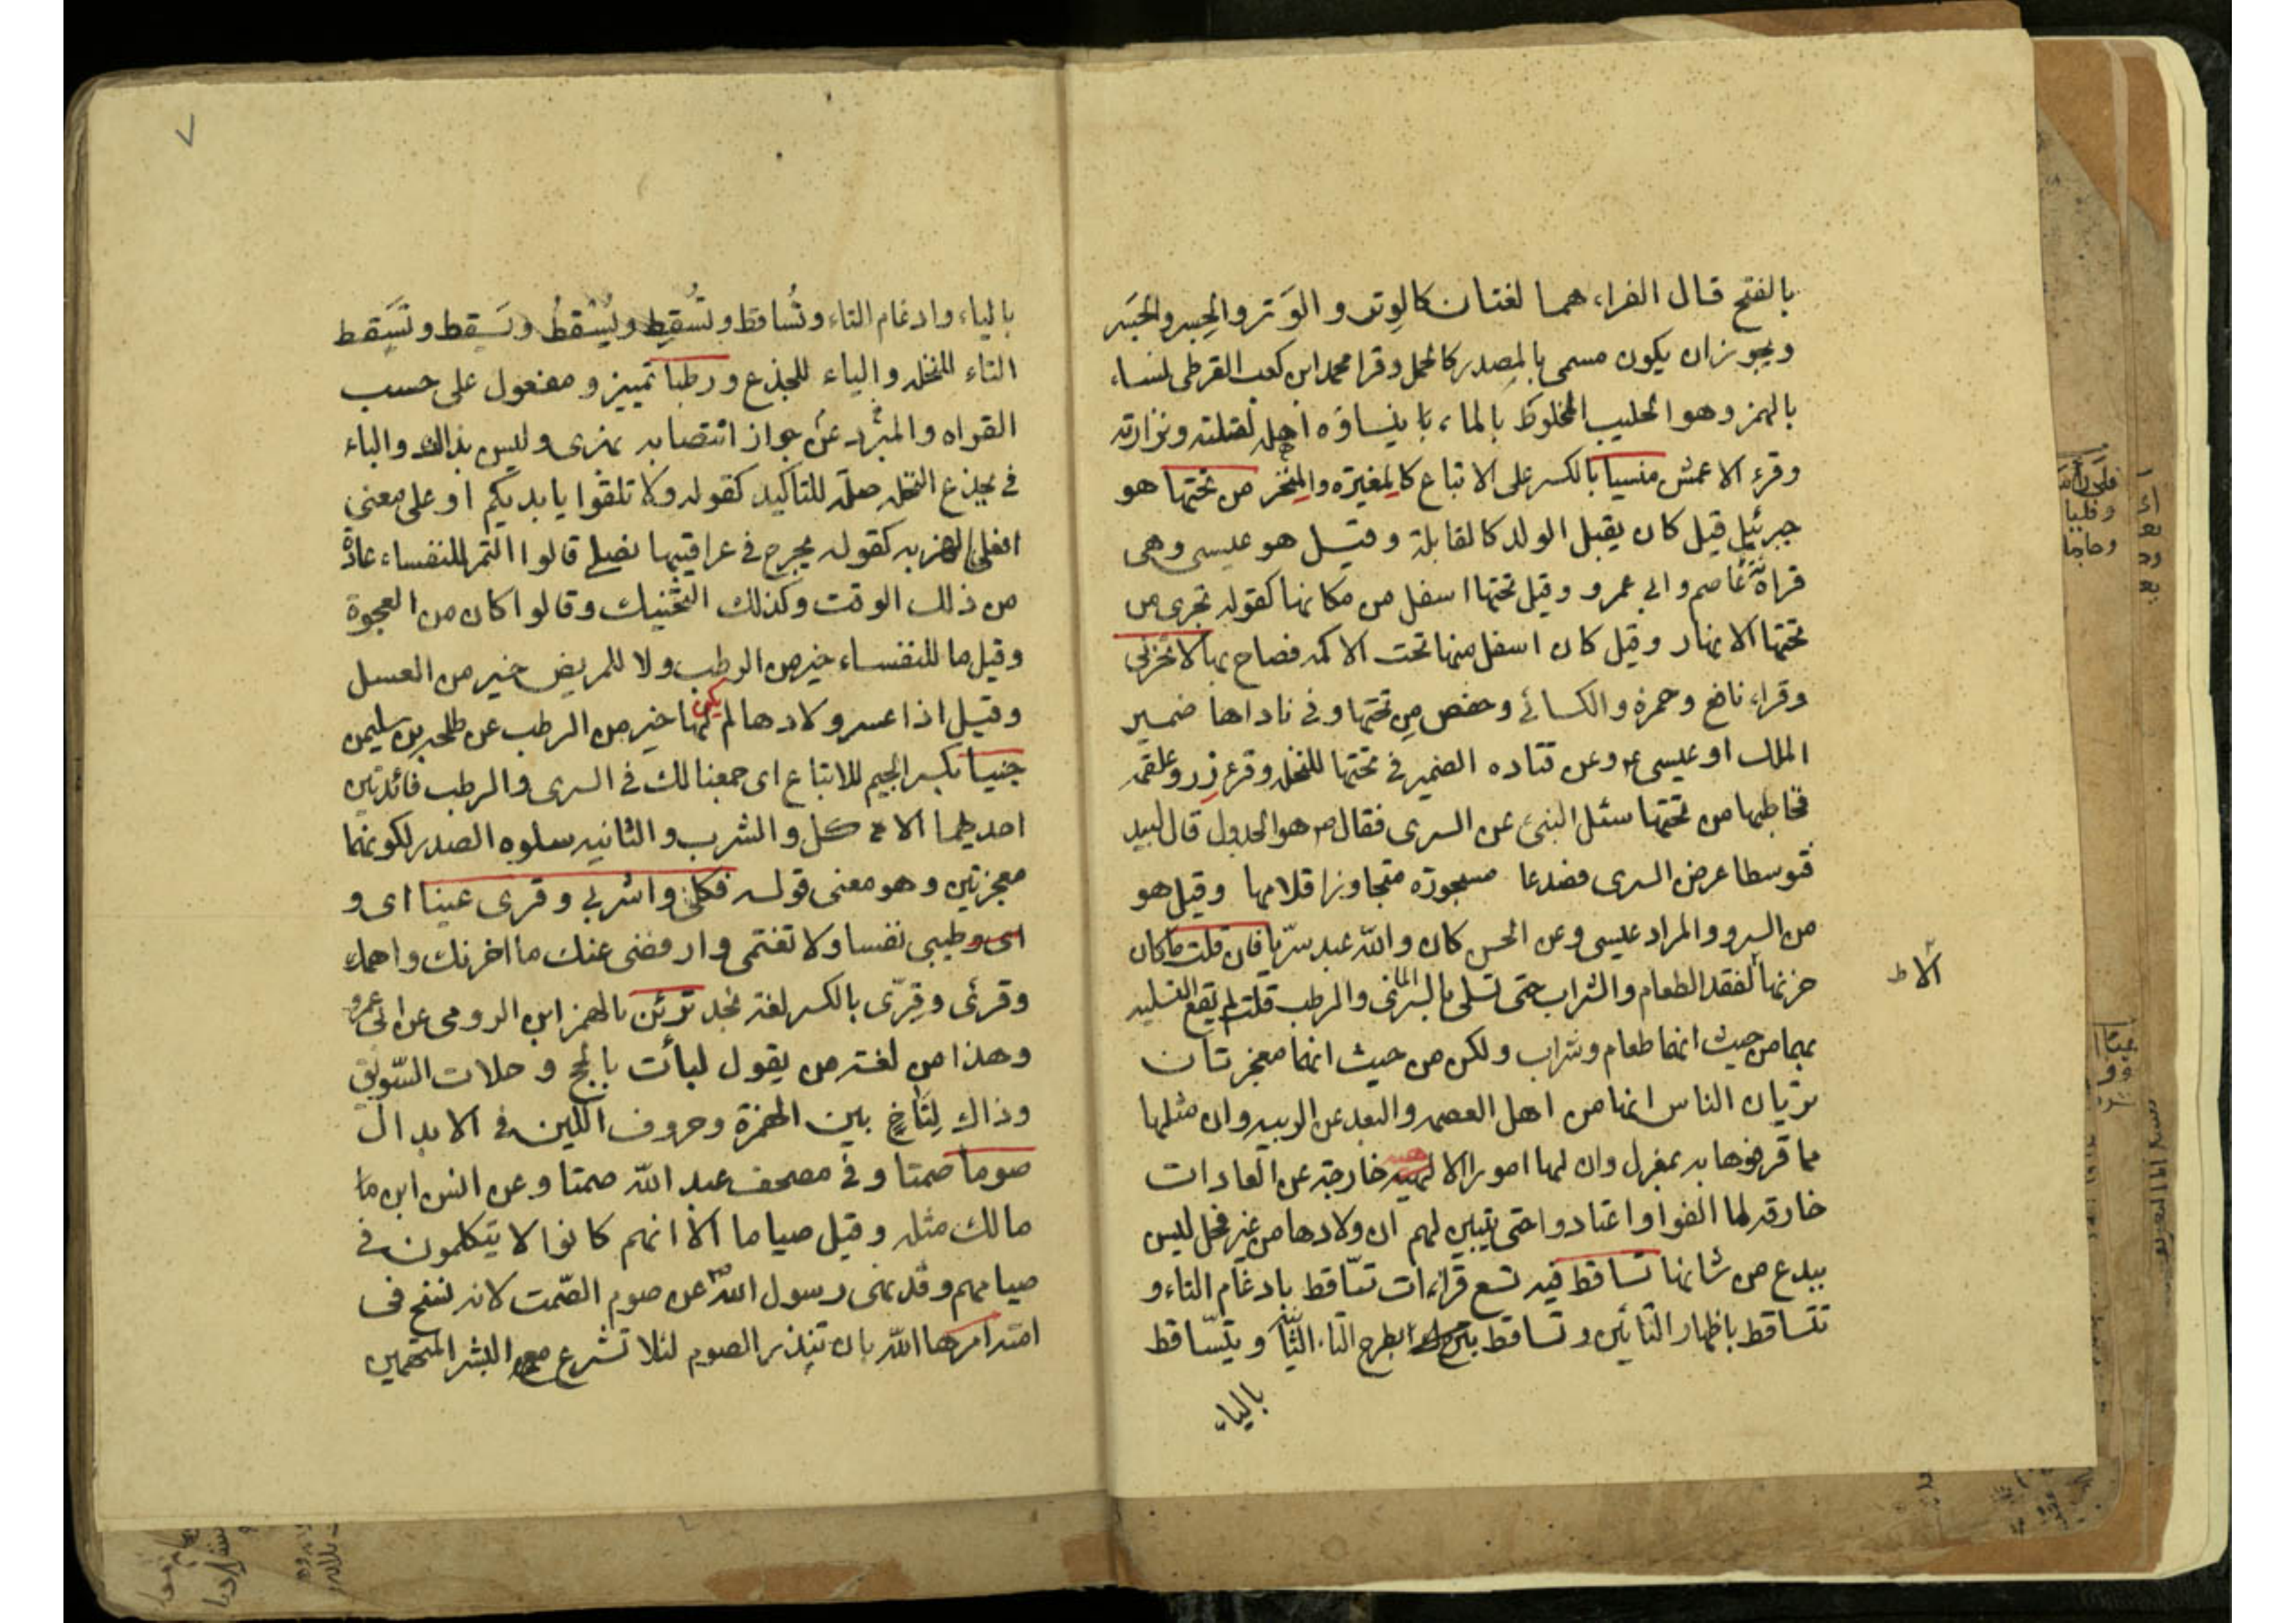 بالفتح قال الفراء هما لغتان كالوِتر و الوَتر والجِسر والجَسر
ويجوزان يكون مسمى بالمصدر كالحمل وقرا محمد ابن كعب القرظى لنساء
بالهمز وهو الحليب المخلوط بالماء ينساؤه اهله لقلته ونزارته
وقرء الاعمش منسيا بالكسر على الاتباع كالمغيرة والمنخر من تحتها هو
جبرئيل قيل كان يقبل الولد كالقابلة وقيل هو عيسى وهى
قراءة عاصم وابى عمرو وقيل تحتها اسفل من مكانها كقوله تجرى من
تحتها الانهار وقيل كان اسفل منها تحت الاكمه فصاح بها لا تحزنى
وقراء نافع وحمزة والكسائى وحفص مِن تحتها وفى ناداها ضمير
الملك او عيسى ع وعن قتاده الضمير فى تحتها للنخله وقرء زر وعلقمه
فخاطبها من تحتها سئل النبى عن السرى فقال ص هو الجدول قال لبيد
فتوسطا عرض السرى فصدعا مسجورة متجاوزا قلامها وقيل هو
من السرو والمراد عيسى وعن الحسن كان والله عبد سرّيا فان قلت ما كان
حزنها لفقد الطعام والشراب حتى تسلى بالسرى والرطب قلت لم تقع التسليه
بهما من حيث انهما طعام وشراب ولكن من حيث انهما معجزتان
تريان الناس انها من اهل العصمه والبعد عن الريبه وان مثلها
مما قرفوها به بمعزل وان لها امورا الاهيه خارجة عن العادات
خارقه لما الفوا واعتادوا حتى يتبين لهم ان ولادها من غير فحل ليس
ببدع من شانها تساقط فيه تسع قراءات تسّاقط بادغام التاء و
تتساقط باظهار التائين و تساقط بطرح التاء الثانية ويسّاقط
بالياء
الاط
٧
بالياء وادغام التاء وتُساقط وتُسقِط ويُسْقِطُ وتَسقط ويَسقط
التاء للنخله والياء للجذع ورطبا تمييز و مفعول على حسب
القراه والمبرّد عن جواز انتصابه بهزى وليس بذاك والباء
فى بجذع النخله صلة للتاكيد كقوله ولا تلقوا بايديكم او على معنى
افعلى الهز به كقوله يجرح فى عراقيبها نصلى قالوا التمر للنفساء عادة
من ذلك الوقت وكذلك التحنيك وقالوا كان من العجوة
وقيل ما للنفساء خير من الرطب ولا للمريض خير من العسل
وقيل اذا عسر ولادها لم يكن لها خير من الرطب عن طلحه بن سليمن
جنيا بكسر الجيم للاتباع اى جمعنا لك فى السرى والرطب فائدتين
احديهما الاكل والشرب والثانيه سلوه الصدر لكونهما
معجزتين وهو معنى قوله فكلى واشربى وقرى عينا اى و
اى وطيبى نفسا ولا تغتمى وارفضى عنك ما احزنك واهمك
وقرئ وقِرّى بالكسر لغة نجد ترئن بالهمز ابن الرومى عن ابى عمرو
وهذا من لغة من يقول لبأت بالحج وحلات السّويق
وذاك لِتَأخٍ بين الهمزة وحروف اللين فى الابدال
صوما صمتا وفى مصحف عبد الله صمتا وعن انس ابن ما
مالك مثله وقيل صياما الا انهم كانوا لا يتكلمون فى
صيامهم وقد نهى رسول الله ص عن صوم الصّمت لانه نسخ فى
امته امرها الله بان تنذر الصوم لئلا تشرع مع البشر المتهمين